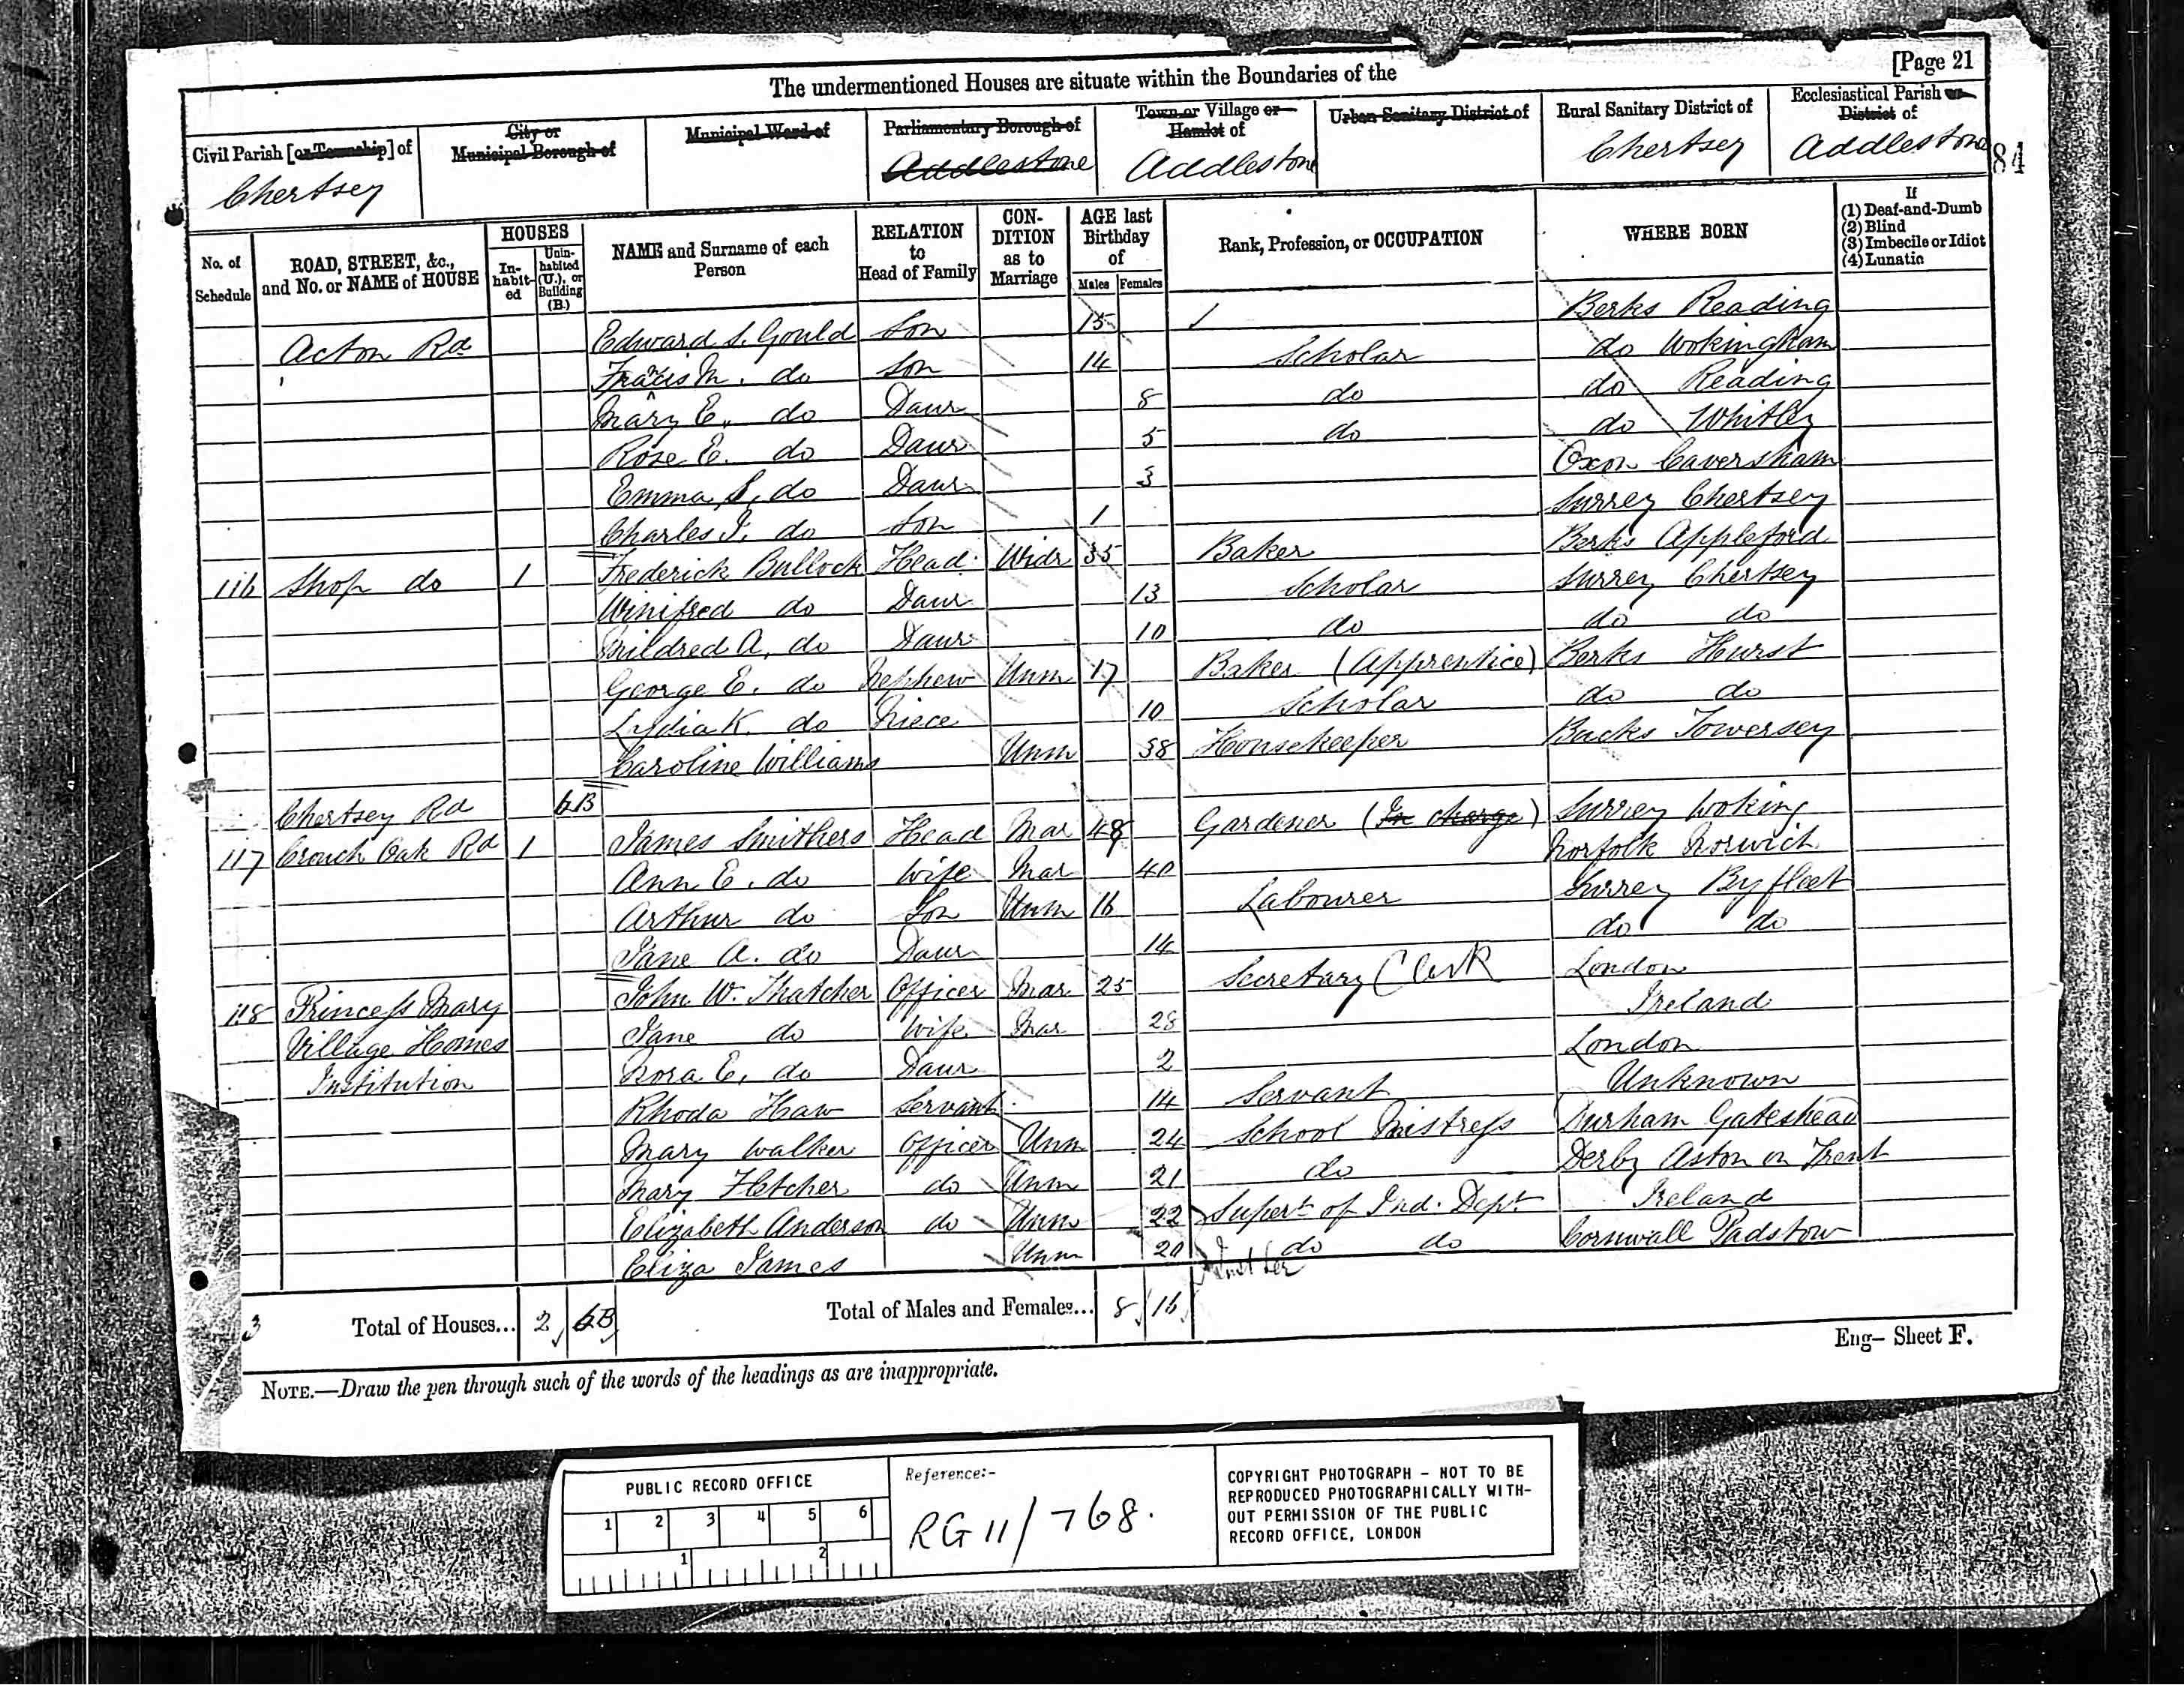 [Page 21
The undermentioned Houses are situate within the Boundaries of the
Civil Parish [or Township] of
City or Municipal Borough of
Municipal Ward of
Parliamentary Borough of
Town or Village or Hamlet of
Urban Sanitary District of
Rural Sanitary District of
Ecclesiastical Parish or District of
Chertsey Addlestone Addlestone Chertsey Addlestone
84
No. of Schedule
ROAD, STREET, &c., and No. or NAME of HOUSE
HOUSES
In-habit-ed
Unin-habited (U.), or Building (B.)
NAME and Surname of each Person
RELATION to Head of Family
CON-DITION as to Marriage
AGE last Birthday of
Males Females
Rank, Profession, or OCCUPATION
WHERE BORN
If
(1) Deaf-and-Dumb
(2) Blind
(3) Imbecile or Idiot
(4) Lunatic
Acton Rd Edward S. Gould Son 15 Berks Reading
Francis M. do Son 14 Scholar do Wokingham
Mary E. do Daur 8 do do Reading
Rose E. do Daur 5 do do Whitley
Emma S. do Daur 3 Oxon Caversham
Charles J. do Son 1 Surrey Chertsey
116 Shop do 1 Frederick Bullock Head Widr 35 Baker Berks Appleford
Winifred do Daur 13 Scholar Surrey Chertsey
Mildred A. do Daur 10 do do do
George E. do Nephew Unm 17 Baker (Apprentice) Berks Hurst
Lydia K. do Niece 10 Scholar do do
Caroline Williams Unm 38 Housekeeper Bucks Towersey
Chertsey Rd 6B
117 Crouch Oak Rd 1 James Smithers Head Mar 48 Gardener (In charge) Surrey Woking
Ann E. do Wife Mar 40 Norfolk Norwich
Arthur do Son Unm 16 Labourer Surrey Byfleet
Jane A. do Daur 14 do do
118 Princess Mary John W. Thatcher Officer Mar 25 Secretary Clerk London
Village Homes Jane do Wife Mar 28 Ireland
Institution Nora E. do Daur 2 London
Rhoda Haw Servant 14 Servant Unknown
Mary Walker Officer Unm 24 School Mistress Durham Gateshead
Mary Fletcher do Unm 21 do Derby Aston on Trent
Elizabeth Anderson do Unm 22 Supert of Ind. Dept Ireland
Eliza James Unm 20 do do Cornwall Padstow
3 Total of Houses... 2 6B Total of Males and Females... 8 16
Eng- Sheet F.
NOTE.—Draw the pen through such of the words of the headings as are inappropriate.
PUBLIC RECORD OFFICE
1 2 3 4 5 6
1 2
Reference:-
RG 11/768.
COPYRIGHT PHOTOGRAPH - NOT TO BE
REPRODUCED PHOTOGRAPHICALLY WITH-
OUT PERMISSION OF THE PUBLIC
RECORD OFFICE, LONDON